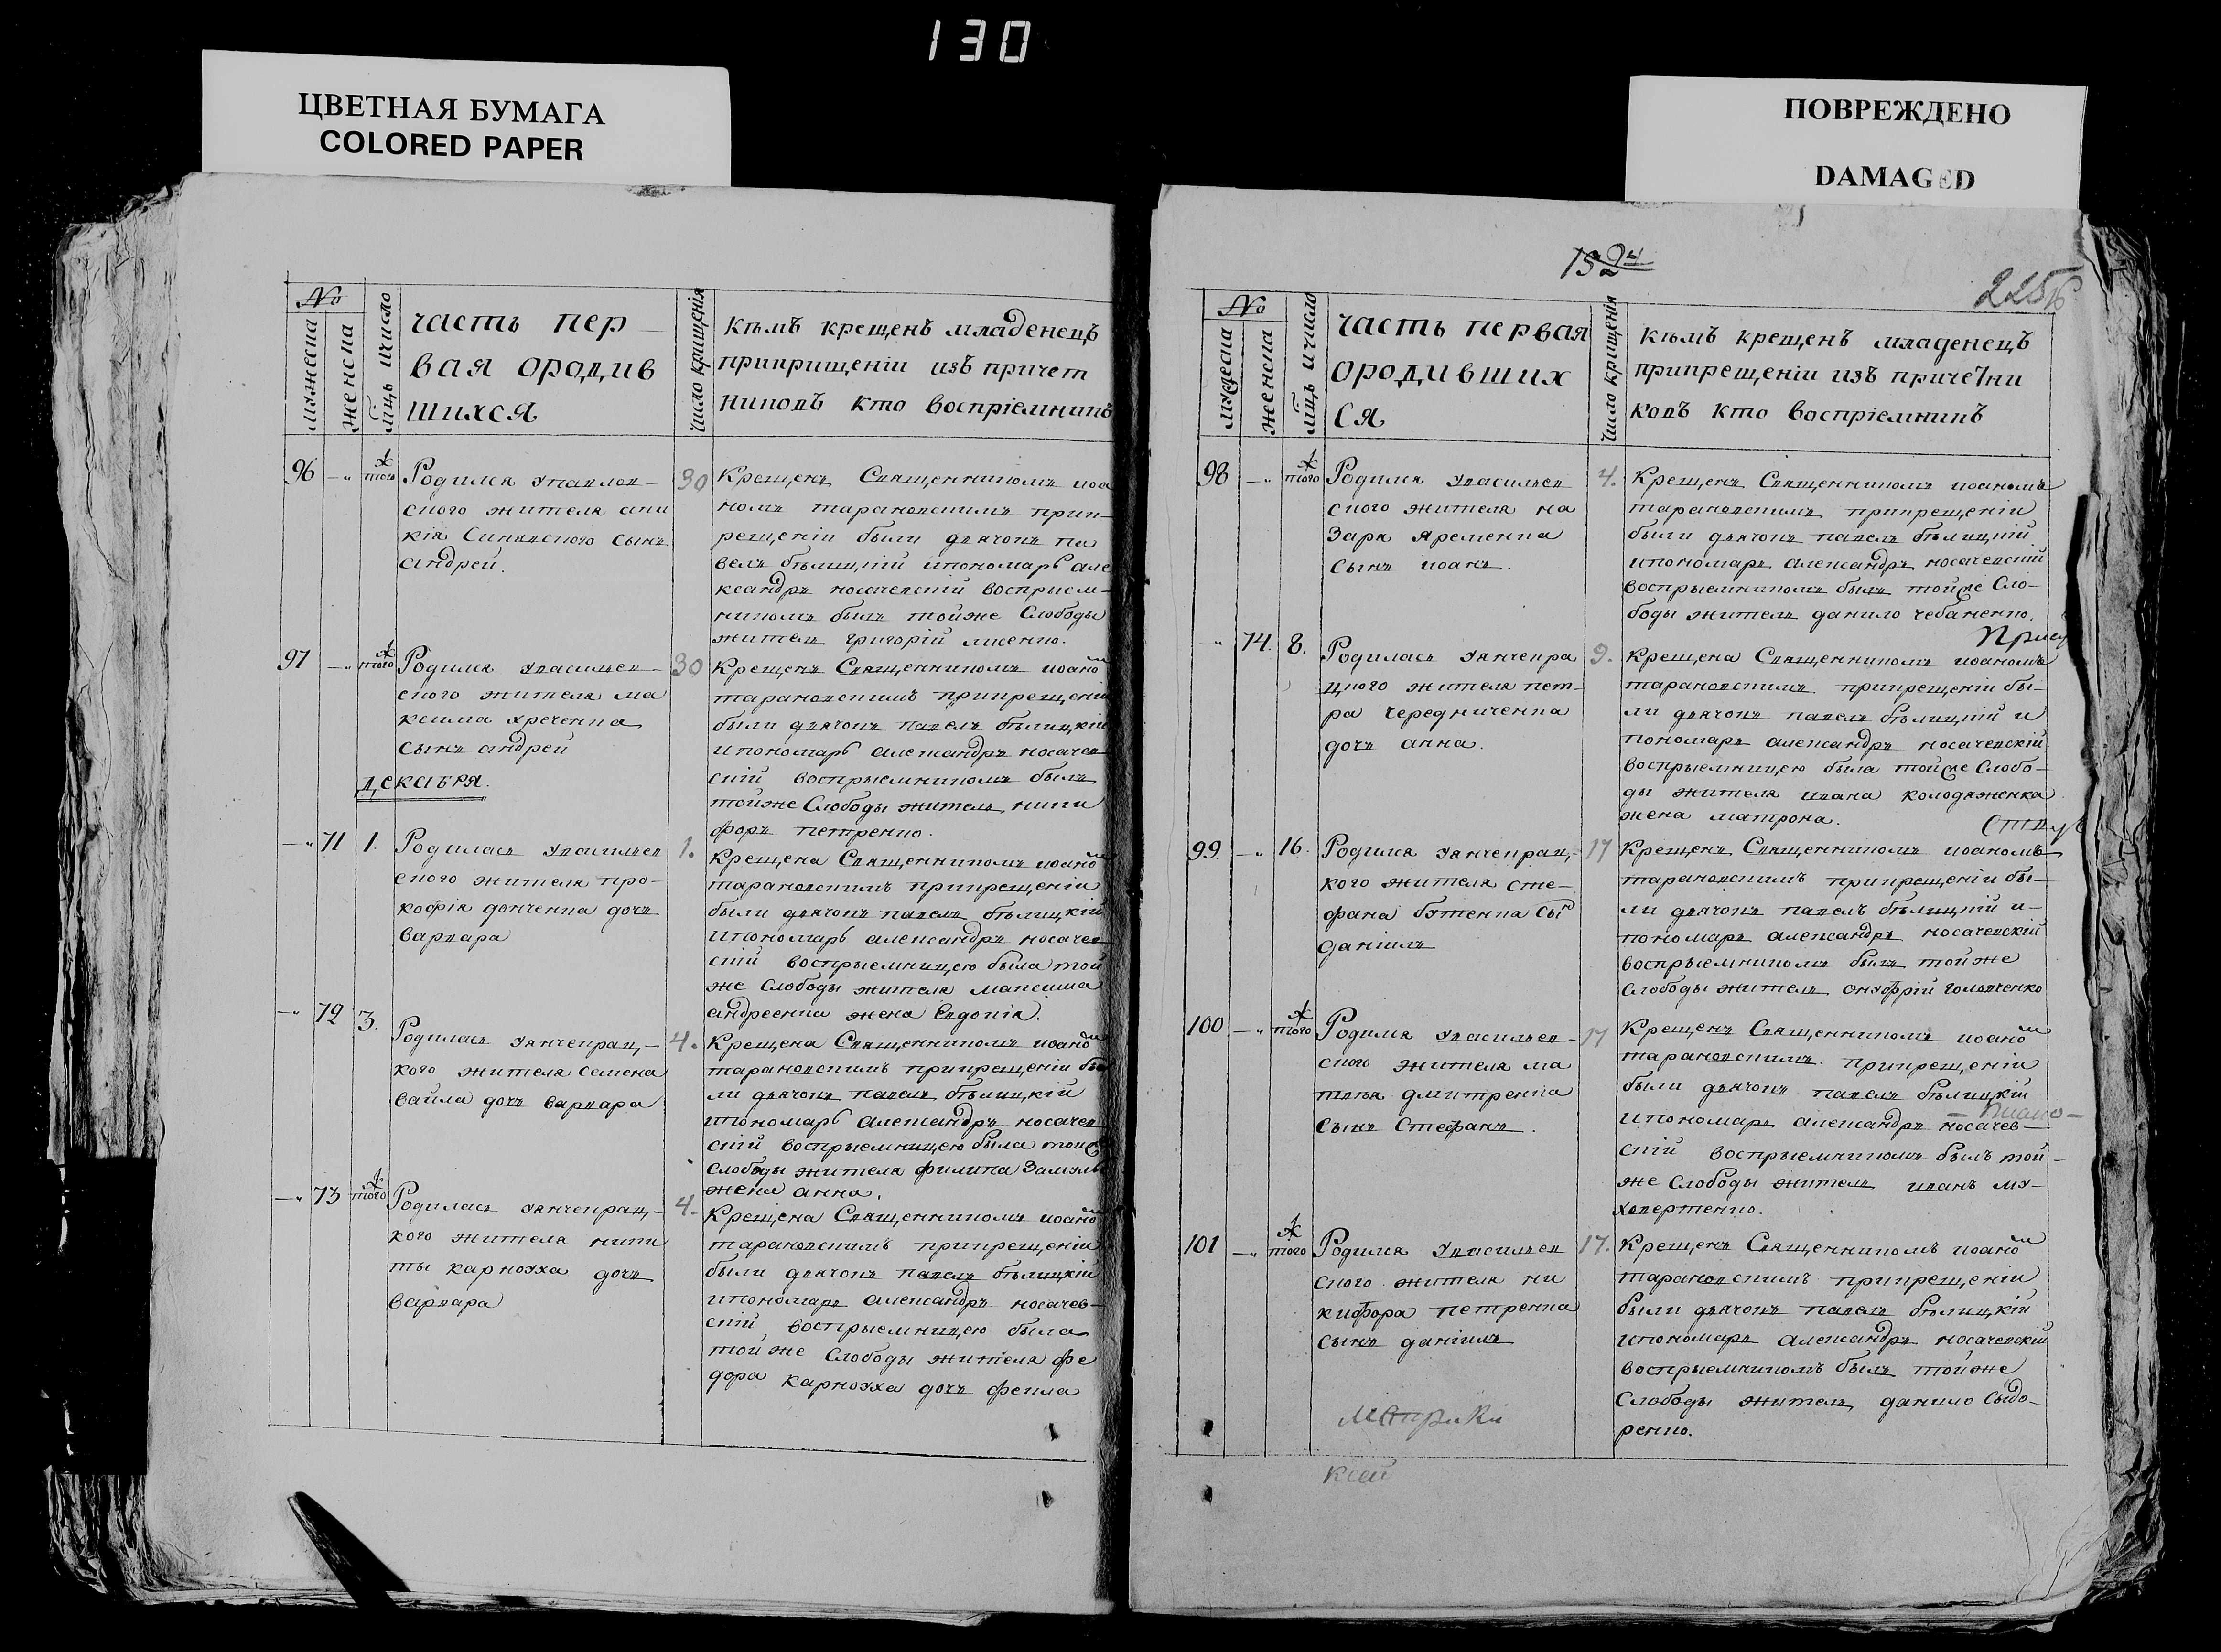 130
ЦВЕТНАЯ БУМАГА
COLORED PAPER
ПОВРЕЖДЕНО
DAMAGED
№
мужеска
женска
мць ичисло
часть пер
вая ородив
шихся
число крищенія
кѣмъ крещенъ младенецъ
приприщеніи изъ причет
никовъ кто воспріемникъ
96
того
Родился упавлов
ского жителя ани
кія Синявского сынъ
андрей.
30
Крещенъ Священникомъ иоа
номъ тарановскимъ прик
рещеніи были дьячокъ па
велъ бѣлицкій ипономарь але
ксандръ носачевскій восприем
никомъ былъ тойже Слободы
житель григорій лисенко.
97
того
Родился увасильев
ского жителя ма
ксима хреченка
сынъ андрей
30
Крещенъ Священникомъ иоаном
тарановскимъ прикрещени
были дьячокъ павелъ бѣлицкій
ипономарь александръ носачев
скій восприемникомъ былъ
тойже Слободы житель ники
форъ петренко.
декабря.
71
1.
Родилась увасильев
ского жителя про
кофія донченка дочь
варвара
1.
Крещена Священникомъ иоаном
тарановскимъ прикрещеніи
были дьячокъ павелъ бѣлицкій
ипономарь александръ носачев
скій восприемницею была той
же Слободы жителя максима
андреенка жена Евдокія.
72
3.
Родилась уянчекрац
кого жителя семена
вайла дочь варвара
4.
Крещена Священникомъ иоаном
тарановскимъ прикрещеніи бы
ли дьячокъ павелъ бѣлицкій
ипономарь александръ носачев
скій восприемницею была тойже
Слободы жителя филипа
жена анна.
73
того
Родилась уянчекрац
кого жителя ники
ты карнауха дочь
варвара
4.
Крещена Священникомъ иоаном
тарановскимъ прикрещеніи
были дьячокъ павелъ бѣлицкій
ипономарь александръ носачев
скій восприемницею была
той же Слободы жителя фе
дора карнауха дочь фекла
№
мужеска
женска
мць ичисло
часть первая
ородивших
ся
число крищенія
кѣмъ крещенъ младенецъ
припрещеніи изъ причетни
ковъ кто воспріемникъ
98
того
Родился увасильев
ского жителя на
зара яременка
сынъ иоанъ.
4.
Крещенъ Священникомъ иоаномъ
тарановскимъ прикрещеніи
были дьячокъ павелъ бѣлицкій
ипономарь александръ носачевскій
восприемникомъ былъ тойже Сло
боды житель данило чебаненко.
74.
8.
Родилась уянчекра
цкого жителя пет
ра чередниченка
дочь анна.
9.
Крещена Священникомъ иоаномъ
тарановскимъ прикрещеніи бы
ли дьячокъ павелъ бѣлицкій и
пономарь александръ носачевскій
восприемницею была тойже Слобо
ды жителя ивана колодяженка
жена матрона.
99.
16.
Родился уянчекрац
кого жителя сте
фана бутенка сынъ
даніилъ
17
Крещенъ Священникомъ иоаномъ
тарановскимъ прикрещеніи бы
ли дьячокъ павелъ бѣлицкій и
пономарь александръ носачевскій
восприемникомъ былъ тойже
Слободы житель онуфрій головченко
100
того
Родился увасильев
ского жителя ма
твѣя дмитренка
сынъ Стефанъ.
17
Крещенъ Священникомъ иоаном
тарановскимъ прикрещеніи
были дьячокъ павелъ бѣлицкій
ипономарь александръ носачев
скій восприемникомъ былъ той
же Слободы житель иванъ му
ховертенко.
101
того
Родился увасильев
ского жителя ни
кифора петренка
сынъ даніилъ
17.
Крещенъ Священникомъ иоаном
тарановскимъ прикрещеніи
были дьячокъ павелъ бѣлицкій
ипономарь александръ носачевскій
восприемникомъ былъ тойже
Слободы житель данило Сыдо
ренко.